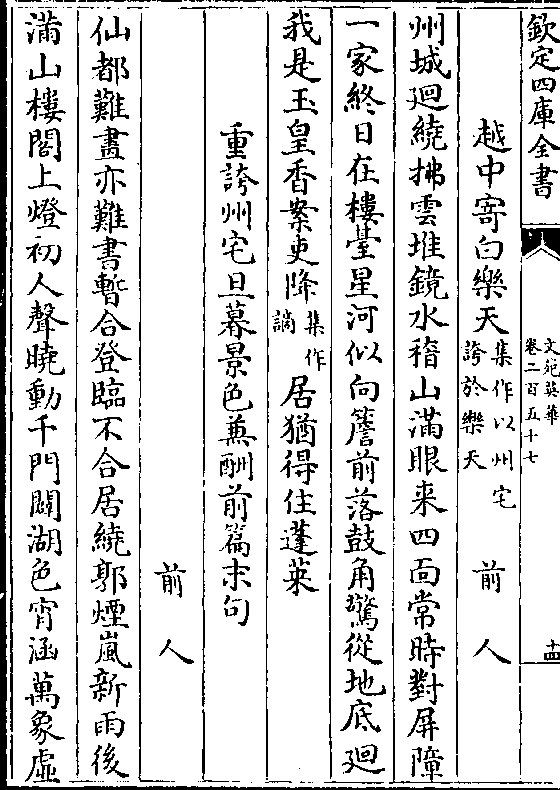 欽定四庫全書
文苑英華
卷二百五十七
十四
越中寄白樂天集作以州宅誇於樂天　前人
州城廻繞拂雲堆鏡水稽山滿眼来四面常時對屏障
一家終日在樓臺星河似向簷前落鼓角驚從地底廻
我是玉皇香案吏降集作謫居猶得住蓬萊
重誇州宅旦暮景色兼酬前篇末句
前人
仙都難畫亦難書暫合登臨不合居繞郭煙嵐新雨後
滿山樓閣上燈初人聲曉動千門闢湖色宵涵萬象虛